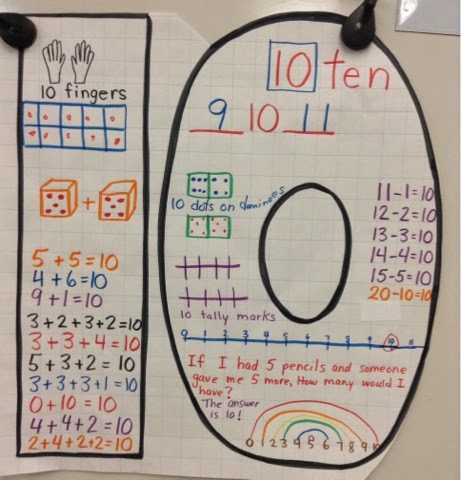 10 fingers
+
5 + 5 = 10
4 + 6 = 10
9 + 1 = 10
3 + 2 + 3 + 2 = 10
3 + 3 + 4 = 10
5 + 3 + 2 = 10
3 + 3 + 3 + 1 = 10
0 + 10 = 10
4 + 4 + 2 = 10
2 + 4 + 2 + 2 = 10
10 ten
9 10 11
10 dots on dominoes
11-1=10
12-2=10
13-3=10
14-4=10
15-5=10
20-10=10
10 tally marks
0 1 2 3 4 5 6 7 8 9 10 11
If I had 5 pencils and someone
gave me 5 more, How many would I
have?
The answer
is 10!
0 1 2 3 4 5 6 7 8 9 10